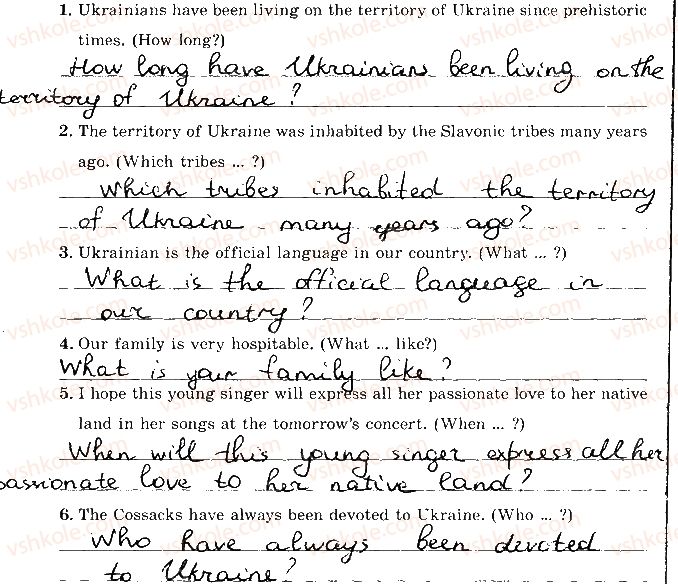 1. Ukrainians have been living on the territory of Ukraine since prehistoric
times. (How long?)
How long have Ukrainians been living on the
territory of Ukraine?
2. The territory of Ukraine was inhabited by the Slavonic tribes many years
ago. (Which tribes ... ?)
Which tribes inhabited the territory
of Ukraine many years ago?
3. Ukrainian is the official language in our country. (What ... ?)
What is the official language in
our country?
4. Our family is very hospitable. (What ... like?)
What is your family like?
5. I hope this young singer will express all her passionate love to her native
land in her songs at the tomorrow's concert. (When ... ?)
When will this young singer express all her
passionate love to her native land?
6. The Cossacks have always been devoted to Ukraine. (Who ... ?)
Who have always been devoted
to Ukraine?
vshkole.com